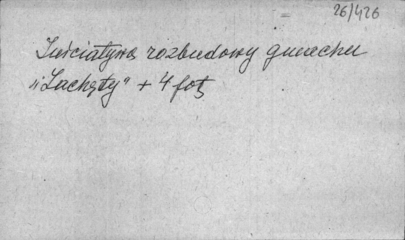 26/426
Inicjatywa rozbudowy gmachu
„Zachęty" + 4 fot.